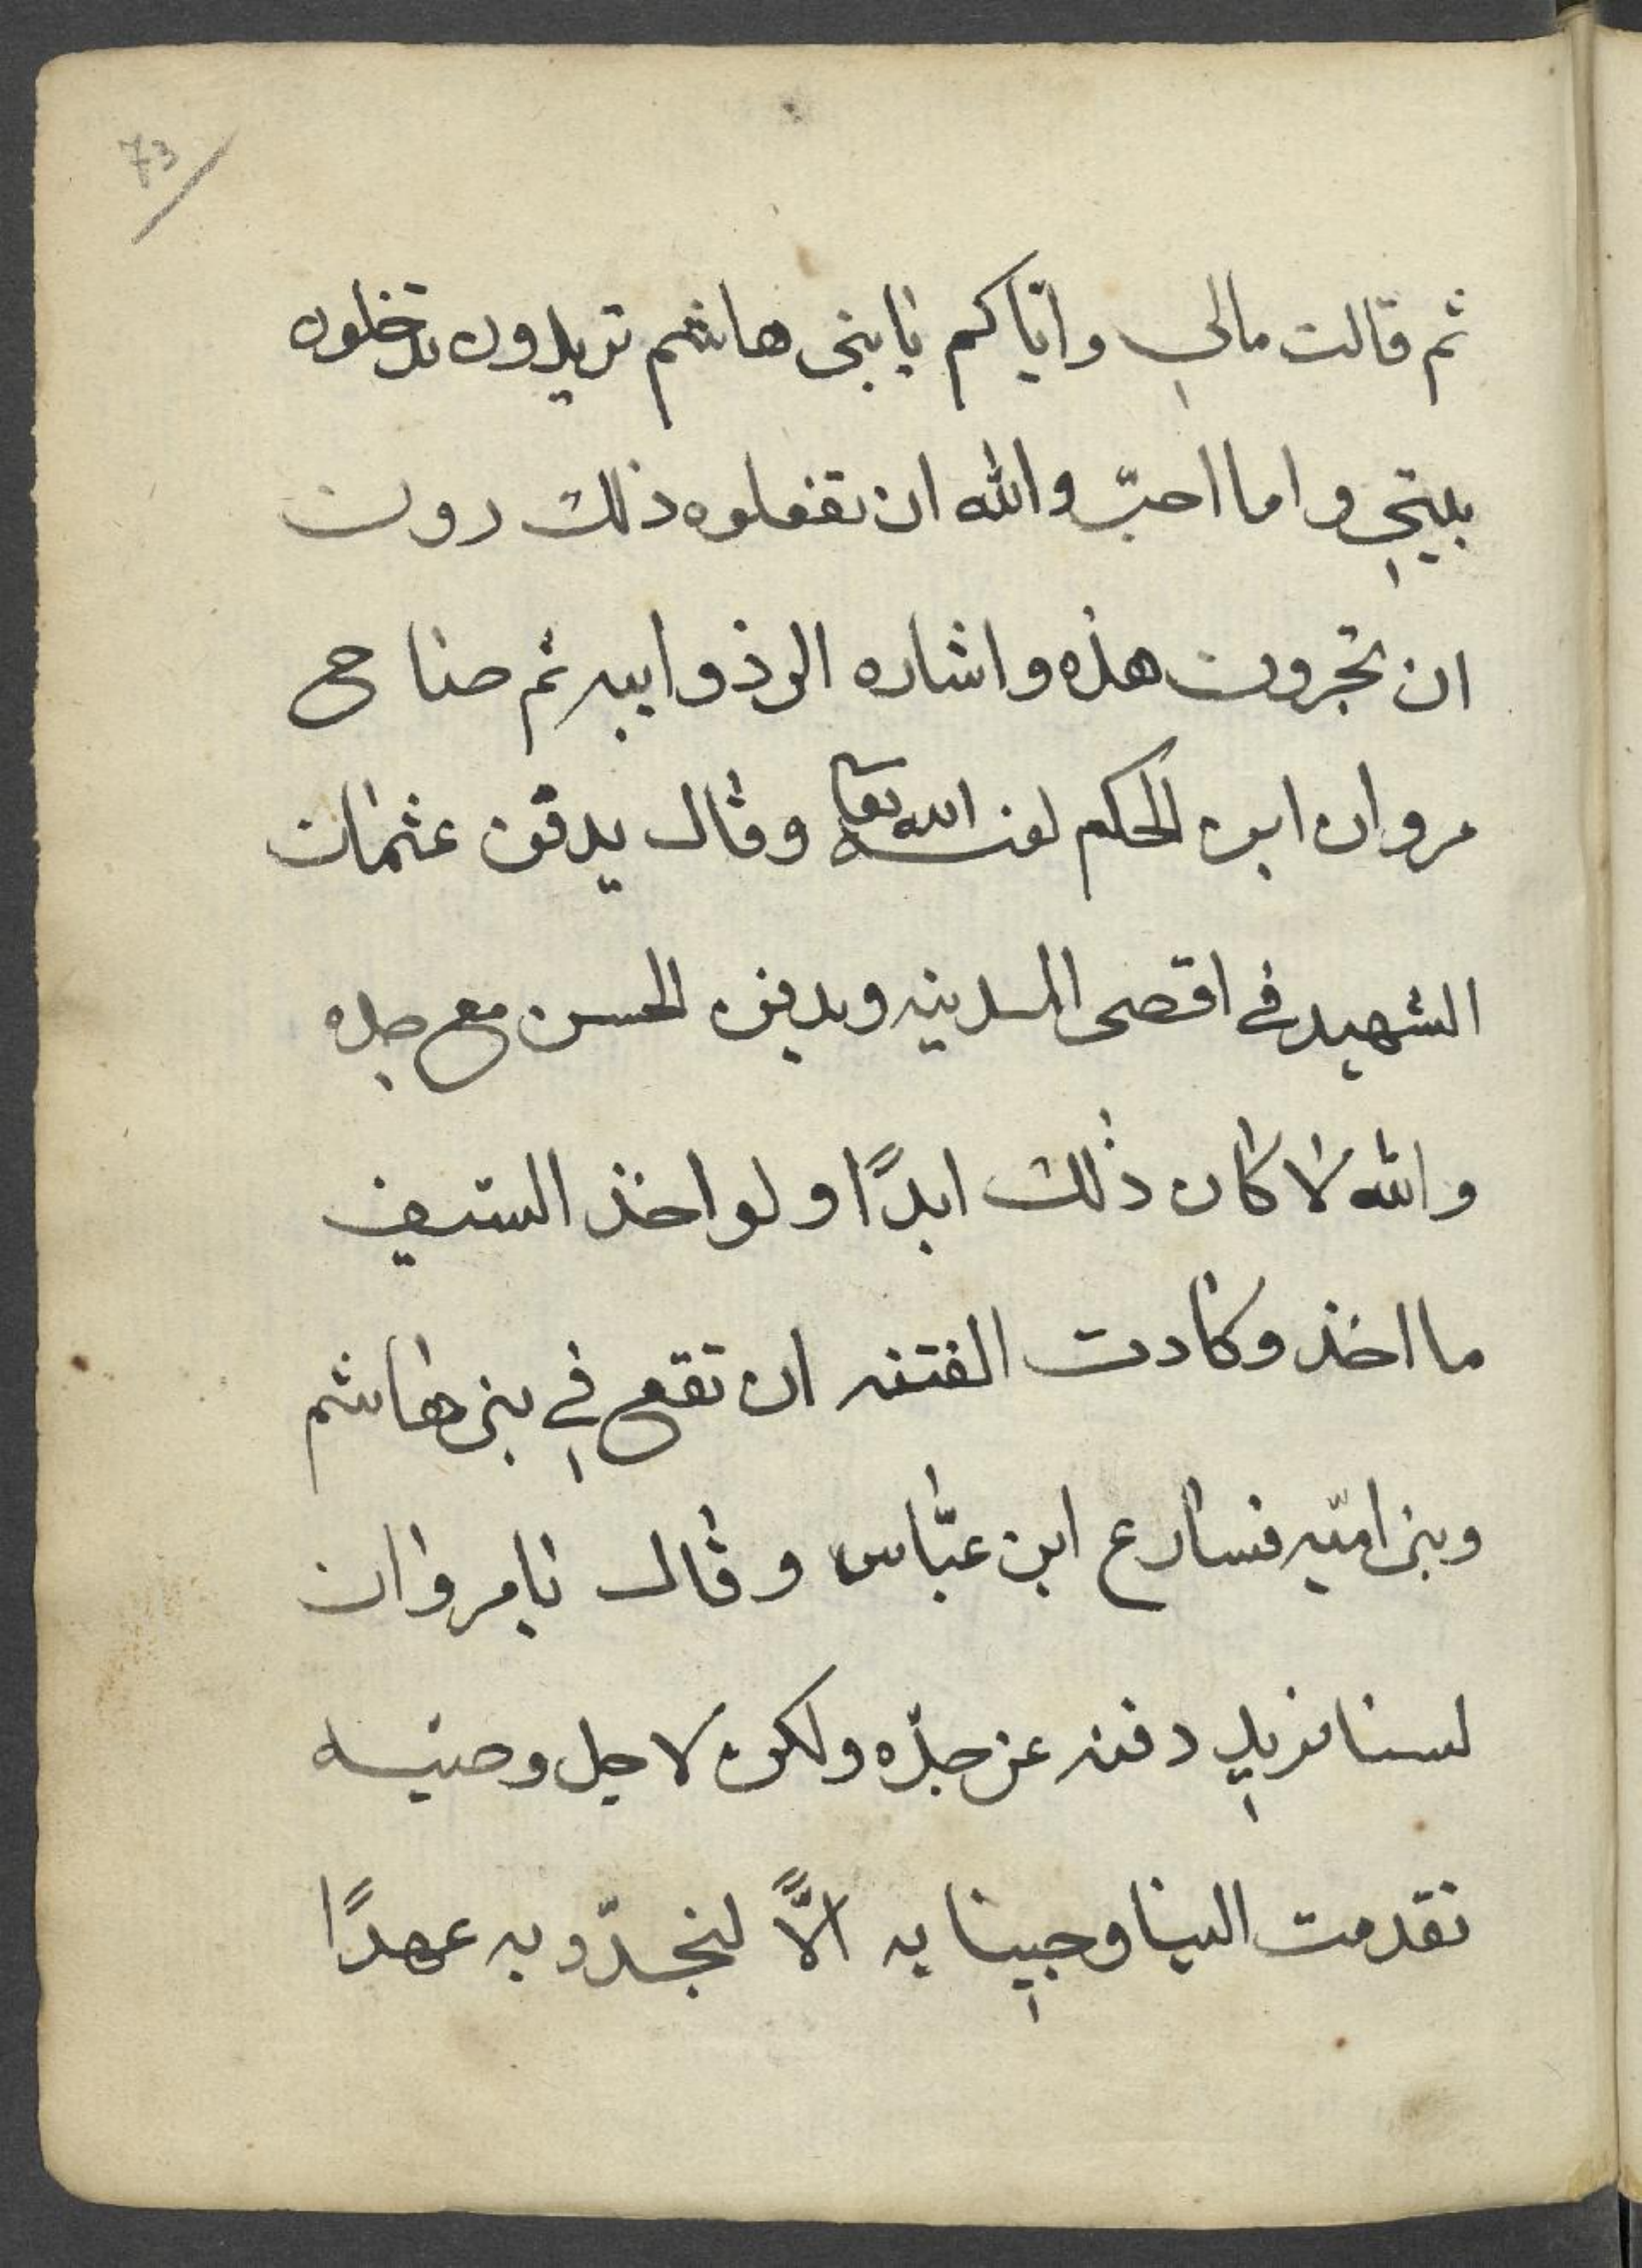 73
ثم قالت مالي واياكم يا بني هاشم تريدون تدخلون
بيتي واما احبّ والله ان تفعلوه ذلك دون
ان تجرون هذه واشاره الى ذوابيه ثم صاح
مروان ابن الحكم لعنه الله تعا وقال يدفن عثمان
الشهيد في اقصى المدينه ويدفن الحسن مع جده
والله لا كان ذلك ابدًا ولو اخذ السيف
ما اخذ وكادت الفتنه ان تقع في بني هاشم
وبني اميّه فسارع ابن عبّاس وقال يا مروان
لسنا نريد دفنه عن جدّه ولكن لاجل وصيه
تقدمت الينا وجينا به الاًّ لنجدّو به عهدًا